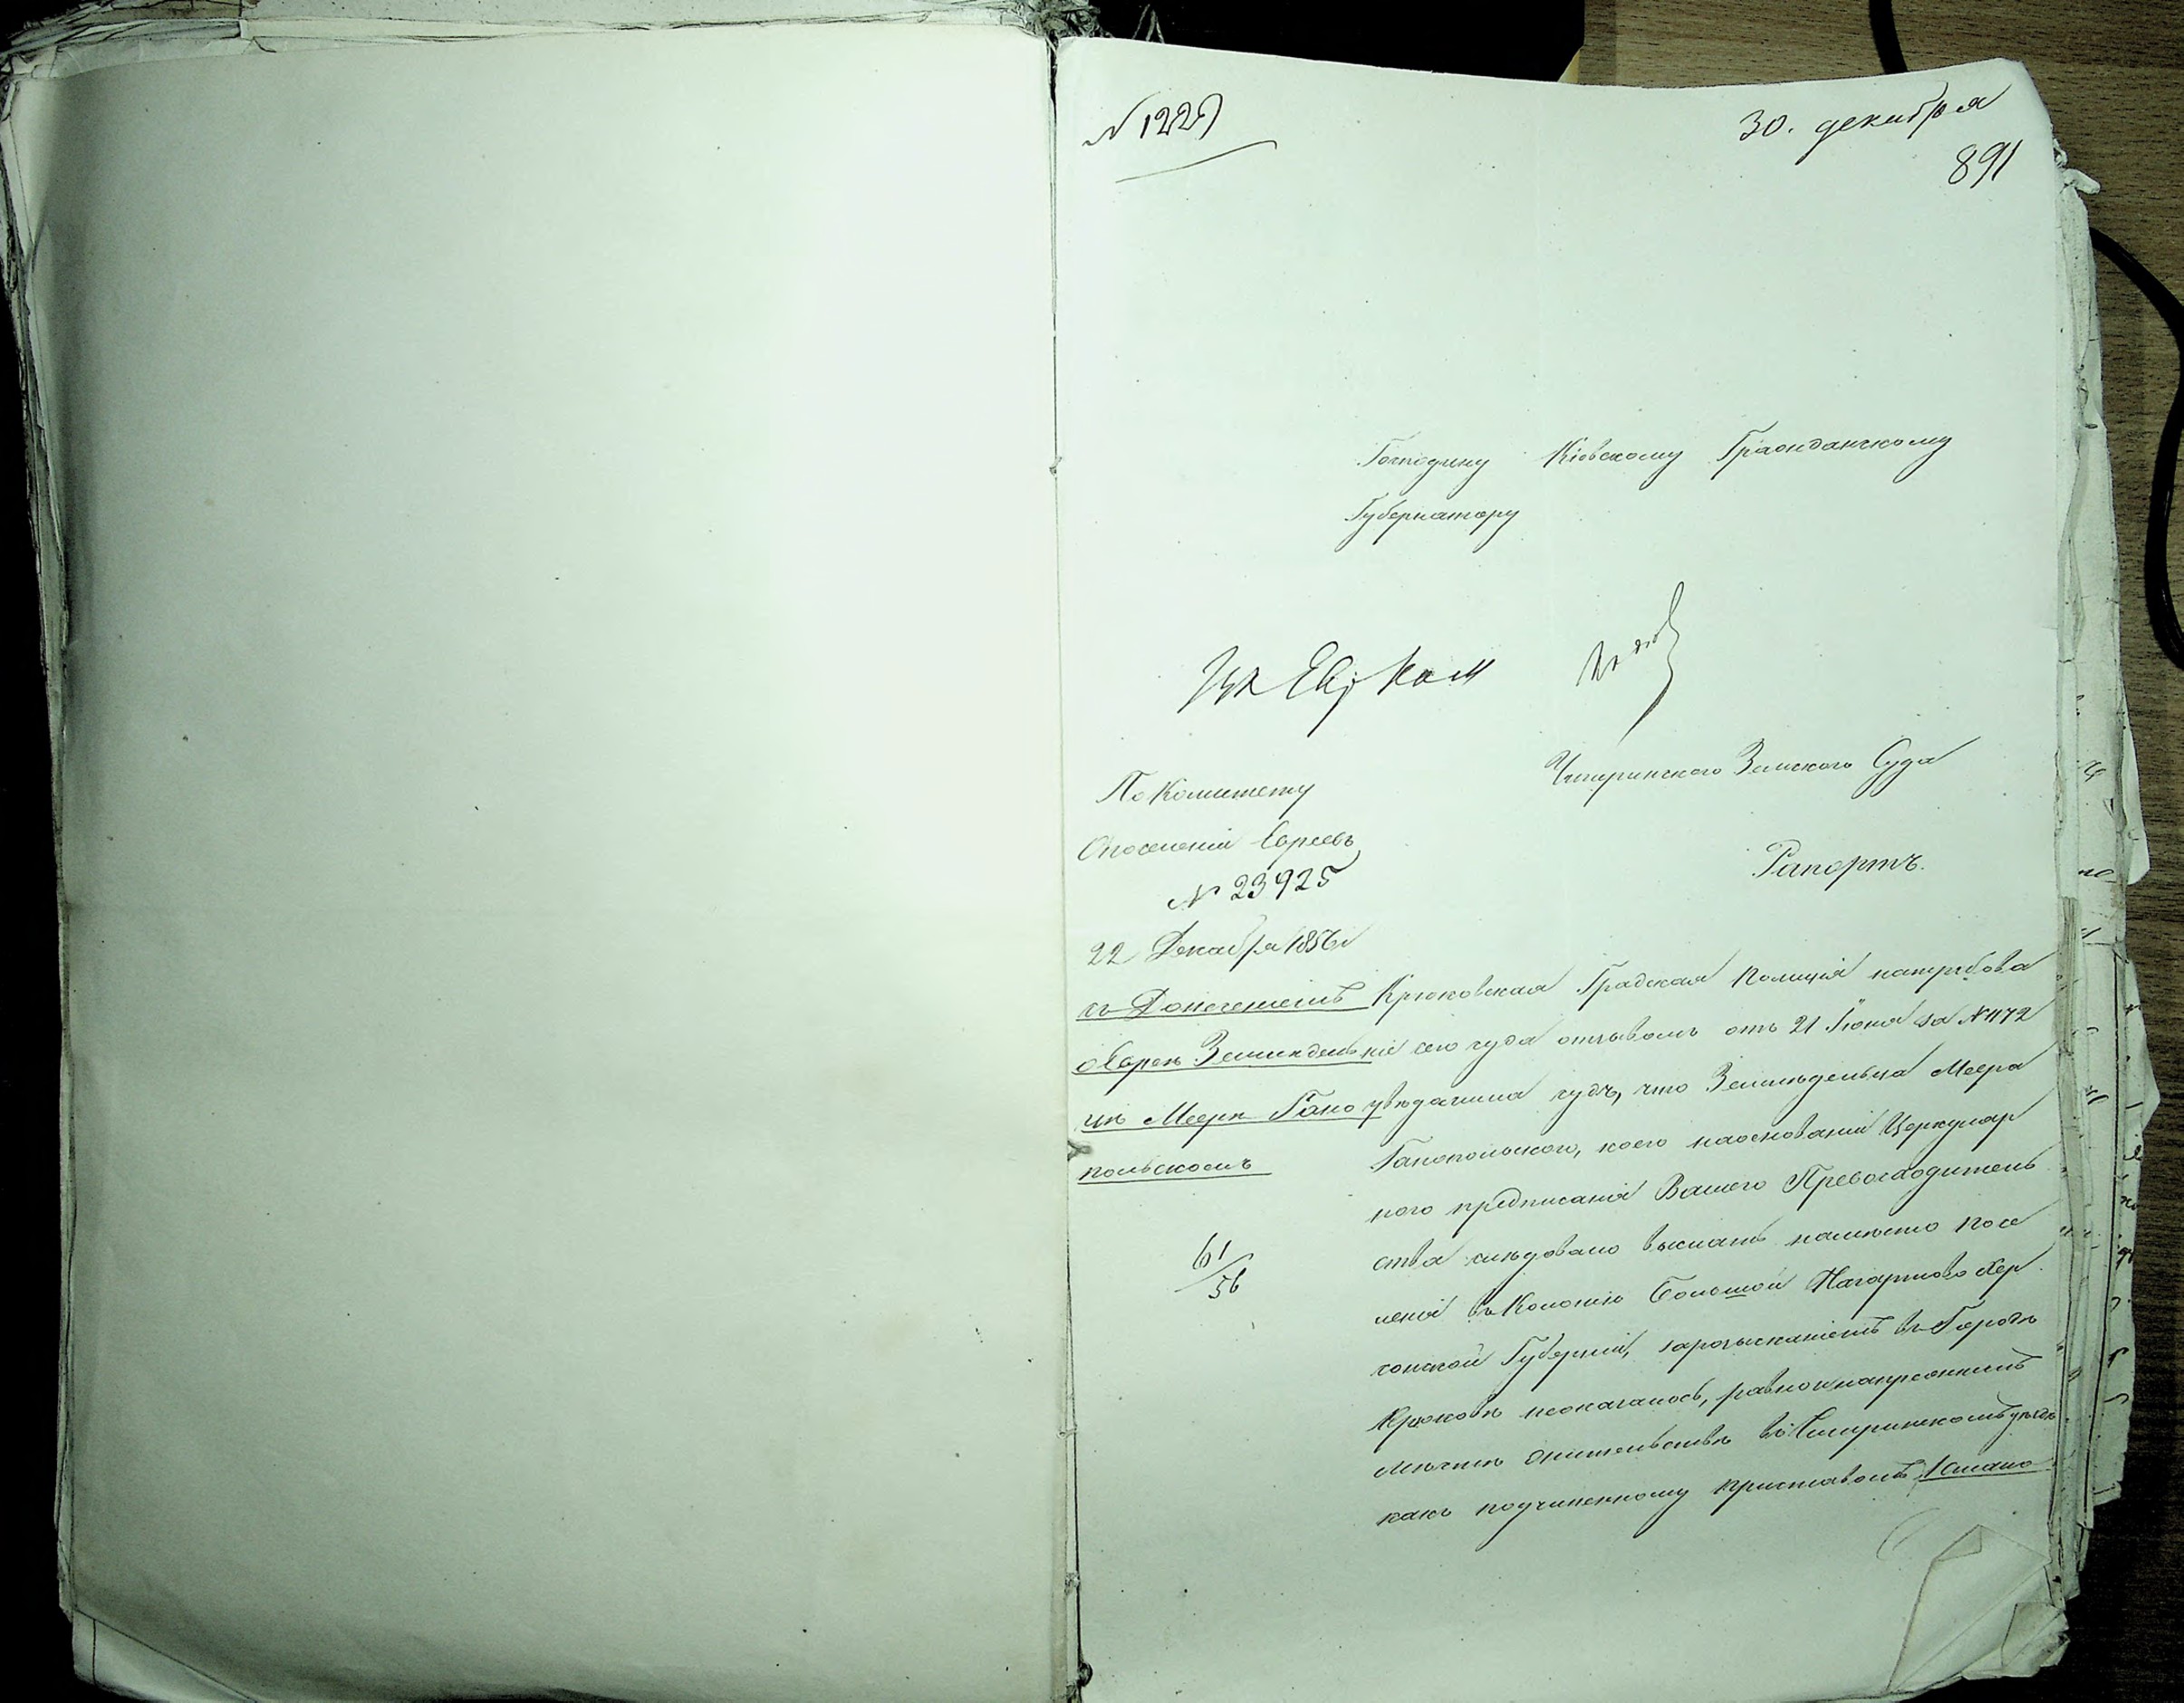 № 1229
30. декабря
891
Господину Кіовскому Гражданскому
Губернатору
Евр Ком
Чигиринского Земского Суда
По Комитету
О поселеніи Евреевъ
№ 23925
22 Декабря 1856 г
Рапортъ.
съ Донесеніемъ
о Евреѣ Земледѣль
цѣ Меерѣ Гано
польскомъ
61/56
Крюковская Градская Полиція на требова
ніе сего суда отзывомъ отъ 21 Іюня за № 1172
увѣдомила судъ, что Земледѣльца Меера
Ганопольского, коего на основаніи Циркуляр
ного предписанія Вашего Превосходитель
ства слѣдовало выслать на мѣсто посе
ленія въ Колонію Большой Нагартовъ Хер
сонской Губерніи, за розысканіемъ въ Городѣ
Крюковѣ не оказалось, равно и на прежнемъ
мѣстѣ жительства въ Чигиринскомъ уѣздѣ
какъ подчиненному Приставомъ 1 Стана